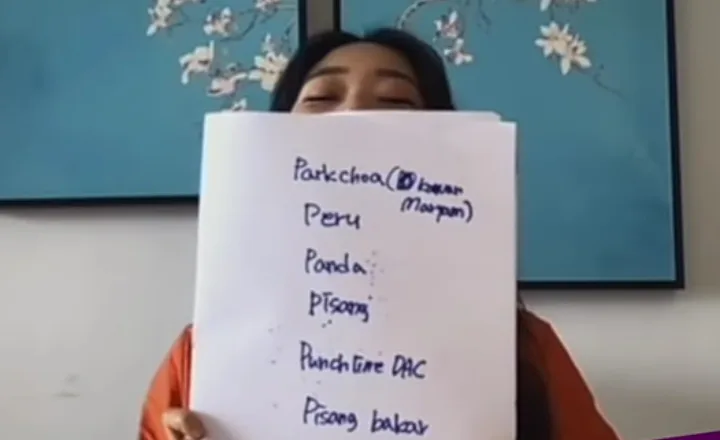 Parkchoa ( kawan
Maryam)
Peru
Panda
Pisang
Punchline DAC
Pisang bakar